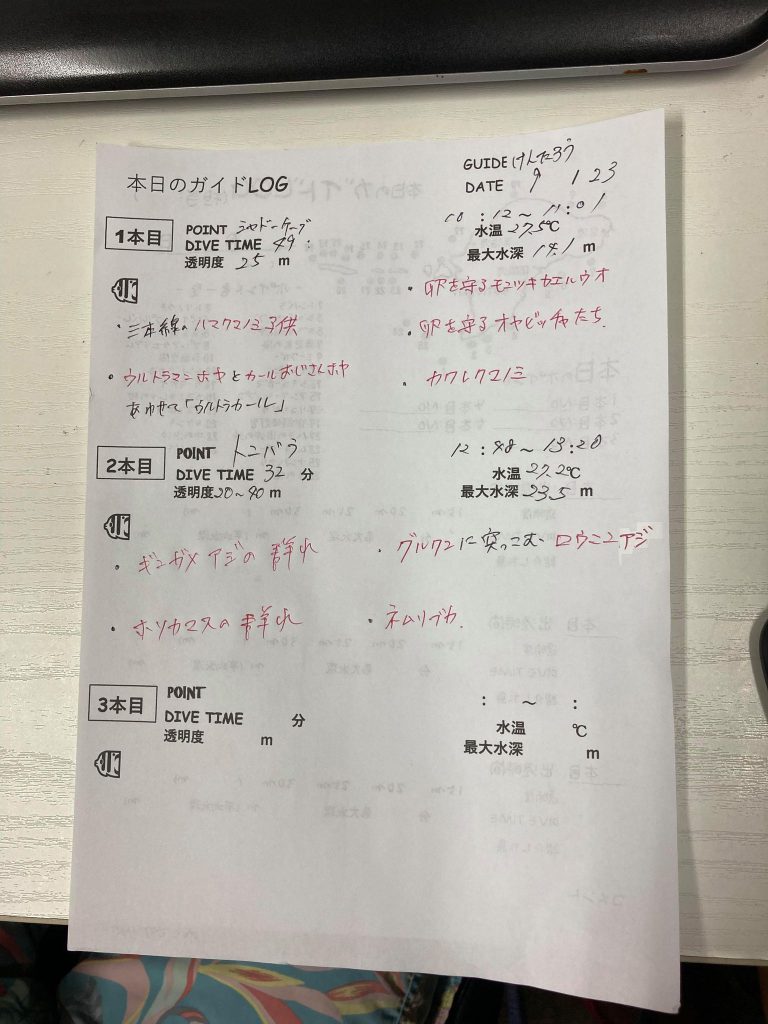 本日のガイドLOG
GUIDE けんたろう
DATE 9 1 23
1本目
POINT シャドーケーブ
10 : 12 ~ 11 : 01
DIVE TIME 49 :
水温 27.5℃
透明度 25 m
最大水深 14.1 m
・三本線のハマクマノミ子供
・卵を守るモンツキカエルウオ
・卵を守るオヤビッチャたち.
・ウルトラマンホヤとカールおじさんホヤ
あわせて「ウルトラカール」
・カクレクマノミ
2本目
POINT トンバラ
12 : 48 ~ 13 : 20
DIVE TIME 32 分
水温 27.2℃
透明度 20~40 m
最大水深 23.5 m
・ギンガメアジの群れ
・グルクンに突っこむロウニンアジ
・ホソカマスの群れ
・ネムリブカ.
3本目
POINT
: ~ :
DIVE TIME 分
水温 ℃
透明度 m
最大水深 m